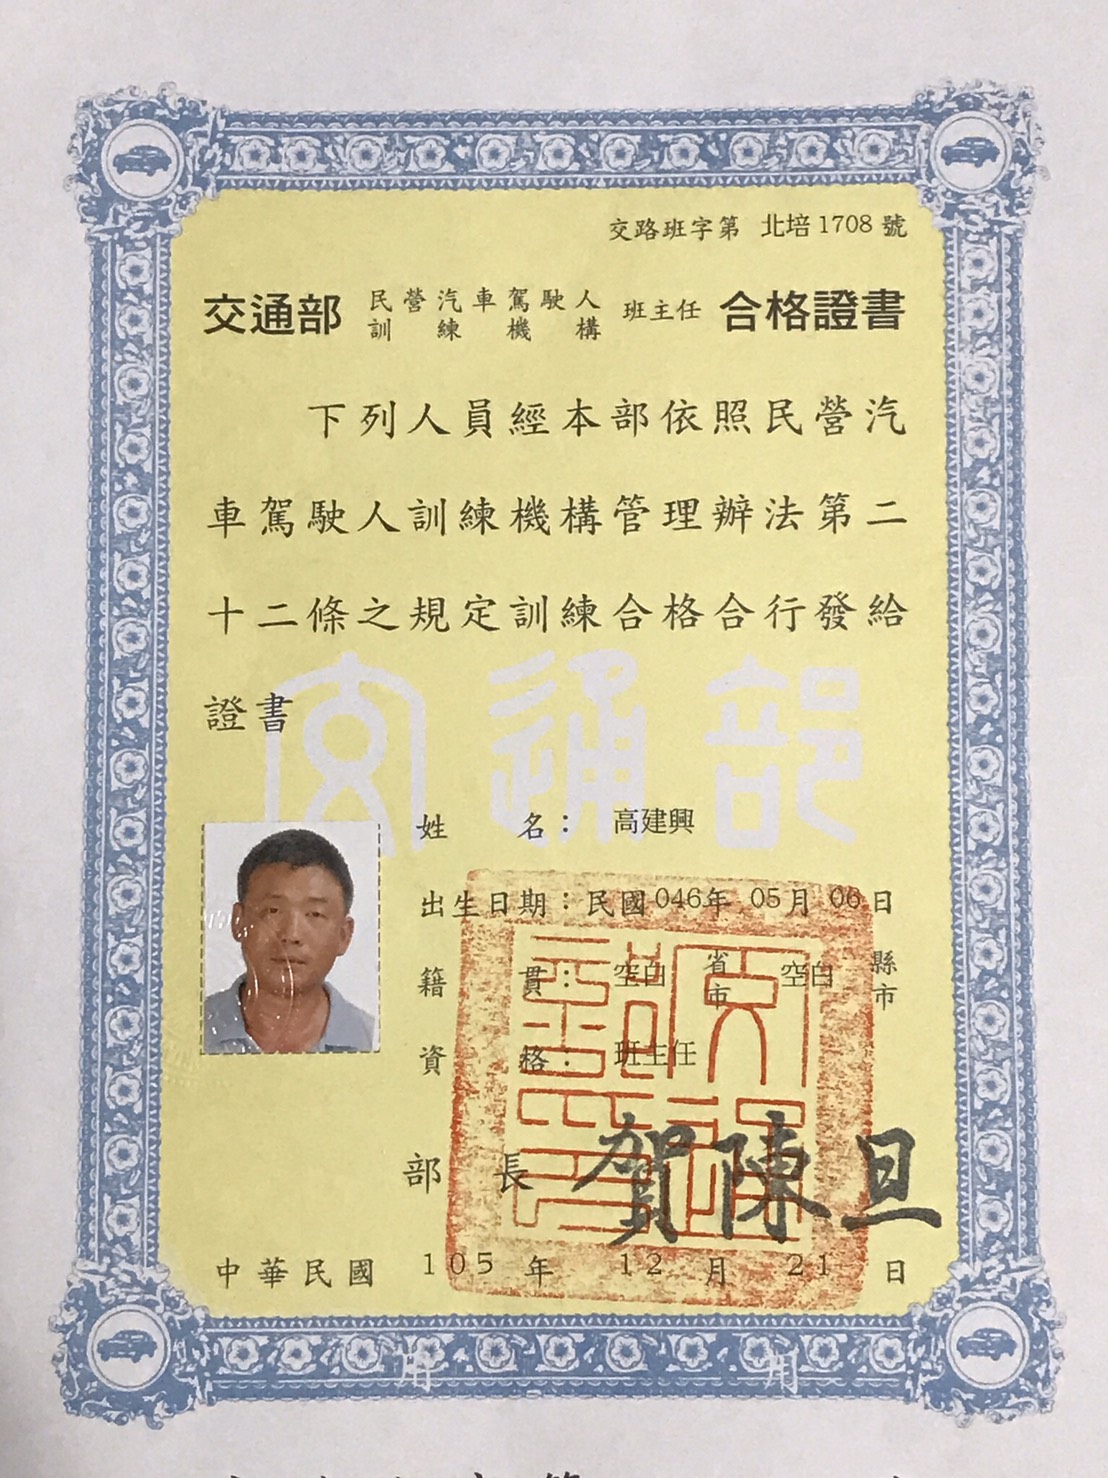 交路班字第 北培1708號
交通部 民營汽車駕駛人訓練機構 班主任 合格證書
下列人員經本部依照民營汽
車駕駛人訓練機構管理辦法第二
十二條之規定訓練合格合行發給
證書
交通部
姓名：高建興
出生日期：民國046年05月06日
籍貫：空白 省市 空白 縣市
資格：班主任
部長 賀陳旦
中華民國105年12月21日